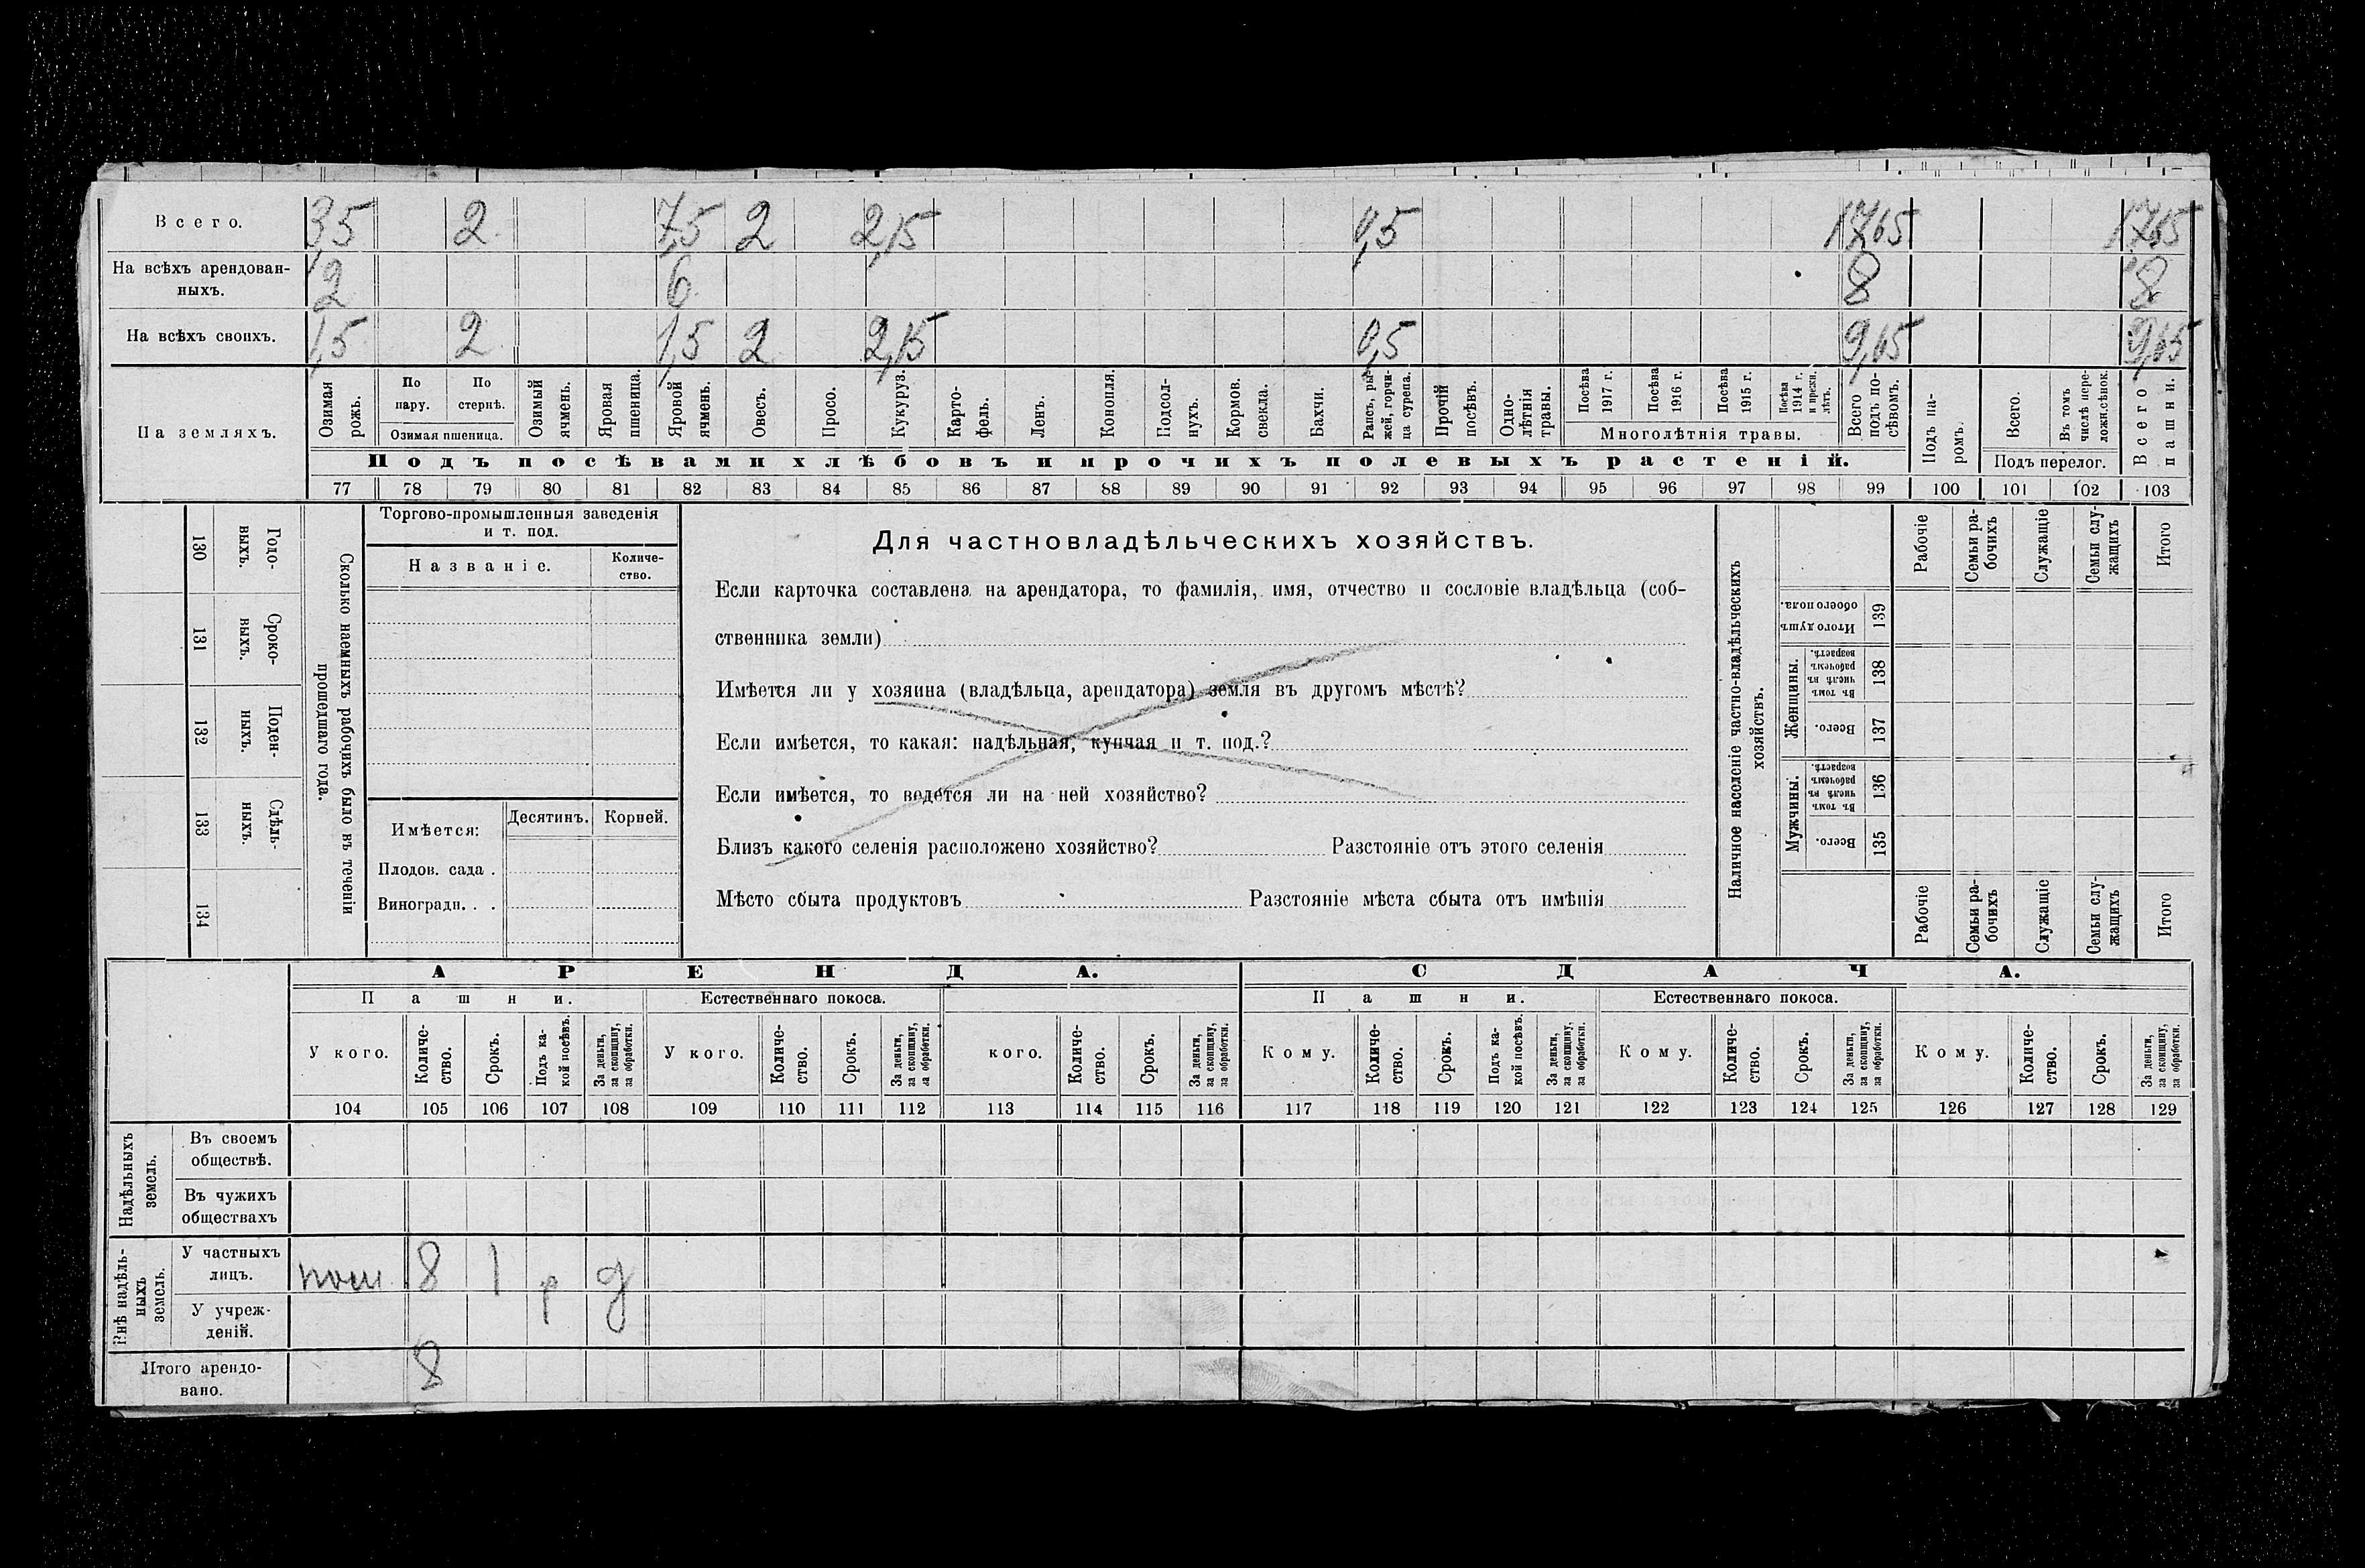 Всего. 3,5 2 7,5 2 2,15 0,5 17,65 17,65
На всѣхъ арендован-
ныхъ. 2 6 8 8
На всѣхъ своихъ. 1,5 2 1,5 2 2,15 0,5 9,65 9,65
На земляхъ.
Озимая рожь.
По пару.
По стернѣ.
Озимая пшеница.
Озимый ячмень.
Яровая пшеница.
Яровой ячмень.
Овесъ.
Просо.
Кукуруз.
Карто-
фель.
Ленъ.
Конопля.
Подсол-
нухъ.
Кормов.
свекла.
Бахчи.
Рапсъ, ры-
жей, горчи-
ца сурепа.
Прочій
посѣвъ.
Одно-
лѣтнія
травы.
Посѣва 1917 г.
Посѣва 1916 г.
Посѣва 1915 г.
Посѣва 1914 г. и прежн. лѣтъ.
Многолѣтнія травы.
Всего
подъ по-
сѣвомъ.
Подъ па-
ромъ.
Всего.
Въ томъ
числѣ пере-
ложн.сѣнок.
Подъ перелог.
Всего
пашни.
Подъ посѣвами хлѣбовъ и прочихъ полевыхъ растеній.
77 78 79 80 81 82 83 84 85 86 87 88 89 90 91 92 93 94 95 96 97 98 99 100 101 102 103
Сколько наемныхъ рабочихъ было въ теченіи
прошедшаго года.
Годо-
выхъ.
130
Сроко-
выхъ.
131
Поден-
ныхъ.
132
Сдѣль-
ныхъ.
133
134
Торгово-промышленныя заведенія
и т. под.
Названіе.
Количе-
ство.
Имѣется:
Десятинъ.
Корней.
Плодов. сада .
Виноградн. . .
Для частновладѣльческихъ хозяйствъ.
Если карточка составлена на арендатора, то фамилія, имя, отчество и сословіе владѣльца (соб-
ственника земли)
Имѣется ли у хозяина (владѣльца, арендатора) земля въ другомъ мѣстѣ?
Если имѣется, то какая: надѣльная, купчая и т. под.?
Если имѣется, то ведется ли на ней хозяйство?
Близъ какого селенія расположено хозяйство? Разстояніе отъ этого селенія
Мѣсто сбыта продуктовъ Разстояніе мѣста сбыта отъ имѣнія
Наличное населеніе частно-владѣльческихъ
хозяйствъ.
Рабочіе
Семьи ра-
бочихъ
Служащіе
Семьи слу-
жащихъ
Итого
Итого душъ
обоего пола.
139
Женщины.
Въ томъ
числѣ въ
рабочемъ
возрастѣ.
138
Всего.
137
Мужчины.
Въ томъ
числѣ въ
рабочемъ
возрастѣ.
136
Всего.
135
Рабочіе
Семьи ра-
бочихъ
Служащіе
Семьи слу-
жащихъ
Итого
АРЕНДА. СДАЧА.
Пашни. Естественнаго покоса. Пашни. Естественнаго покоса.
У кого.
Количе-
ство.
Срокъ.
Подъ ка-
кой посѣвъ.
За деньги,
за скопщину,
за обработки.
У кого.
Количе-
ство.
Срокъ.
За деньги,
за скопщину,
за обработки.
кого.
Количе-
ство.
Срокъ.
За деньги,
за скопщину,
за обработки.
Кому.
Количе-
ство.
Срокъ.
Подъ ка-
кой посѣвъ.
За деньги,
за скопщину,
за обработки.
Кому.
Количе-
ство.
Срокъ.
За деньги,
за скопщину,
за обработки.
Кому.
Количе-
ство.
Срокъ.
За деньги,
за скопщину,
за обработки.
104 105 106 107 108 109 110 111 112 113 114 115 116 117 118 119 120 121 122 123 124 125 126 127 128 129
Надѣльныхъ
земель.
Въ своемъ
обществѣ.
Въ чужихъ
обществахъ
Внѣ надѣль-
ныхъ
земель.
У частныхъ
лицъ. пом 8 1 р д
У учреж-
деній.
Итого арендо-
вано. 8